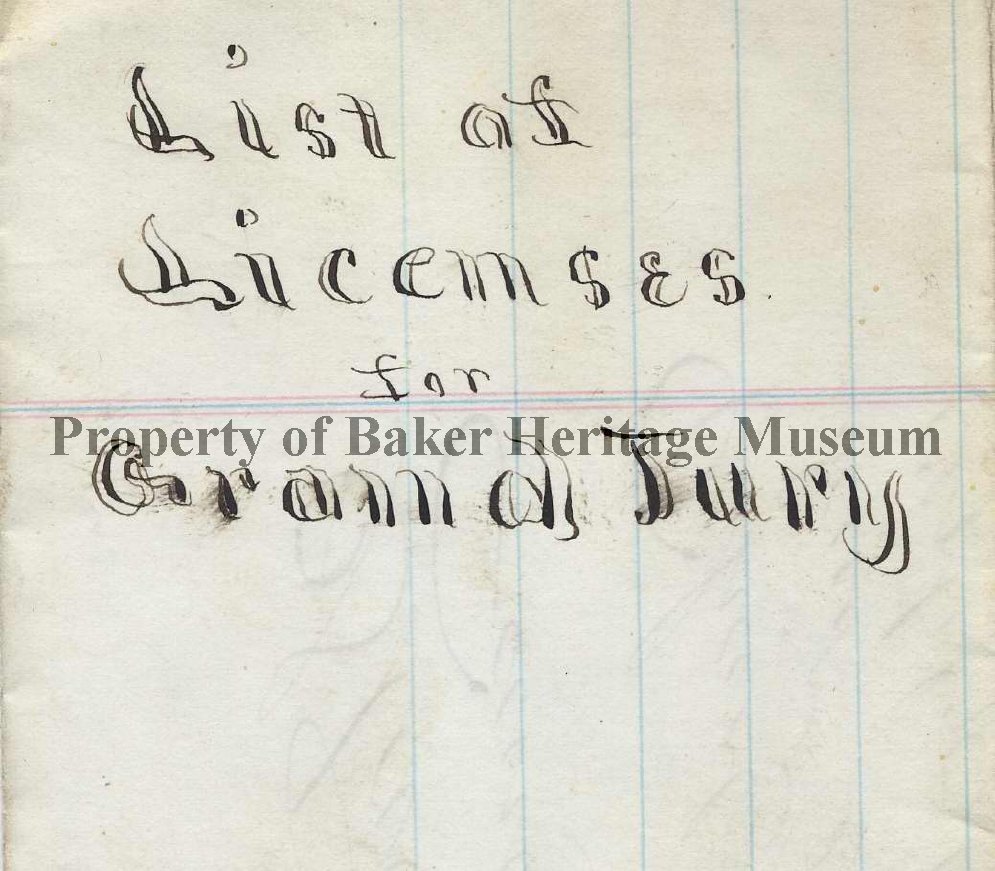 List of
Licenses
for
Property of Baker Heritage Museum
Grand Jury